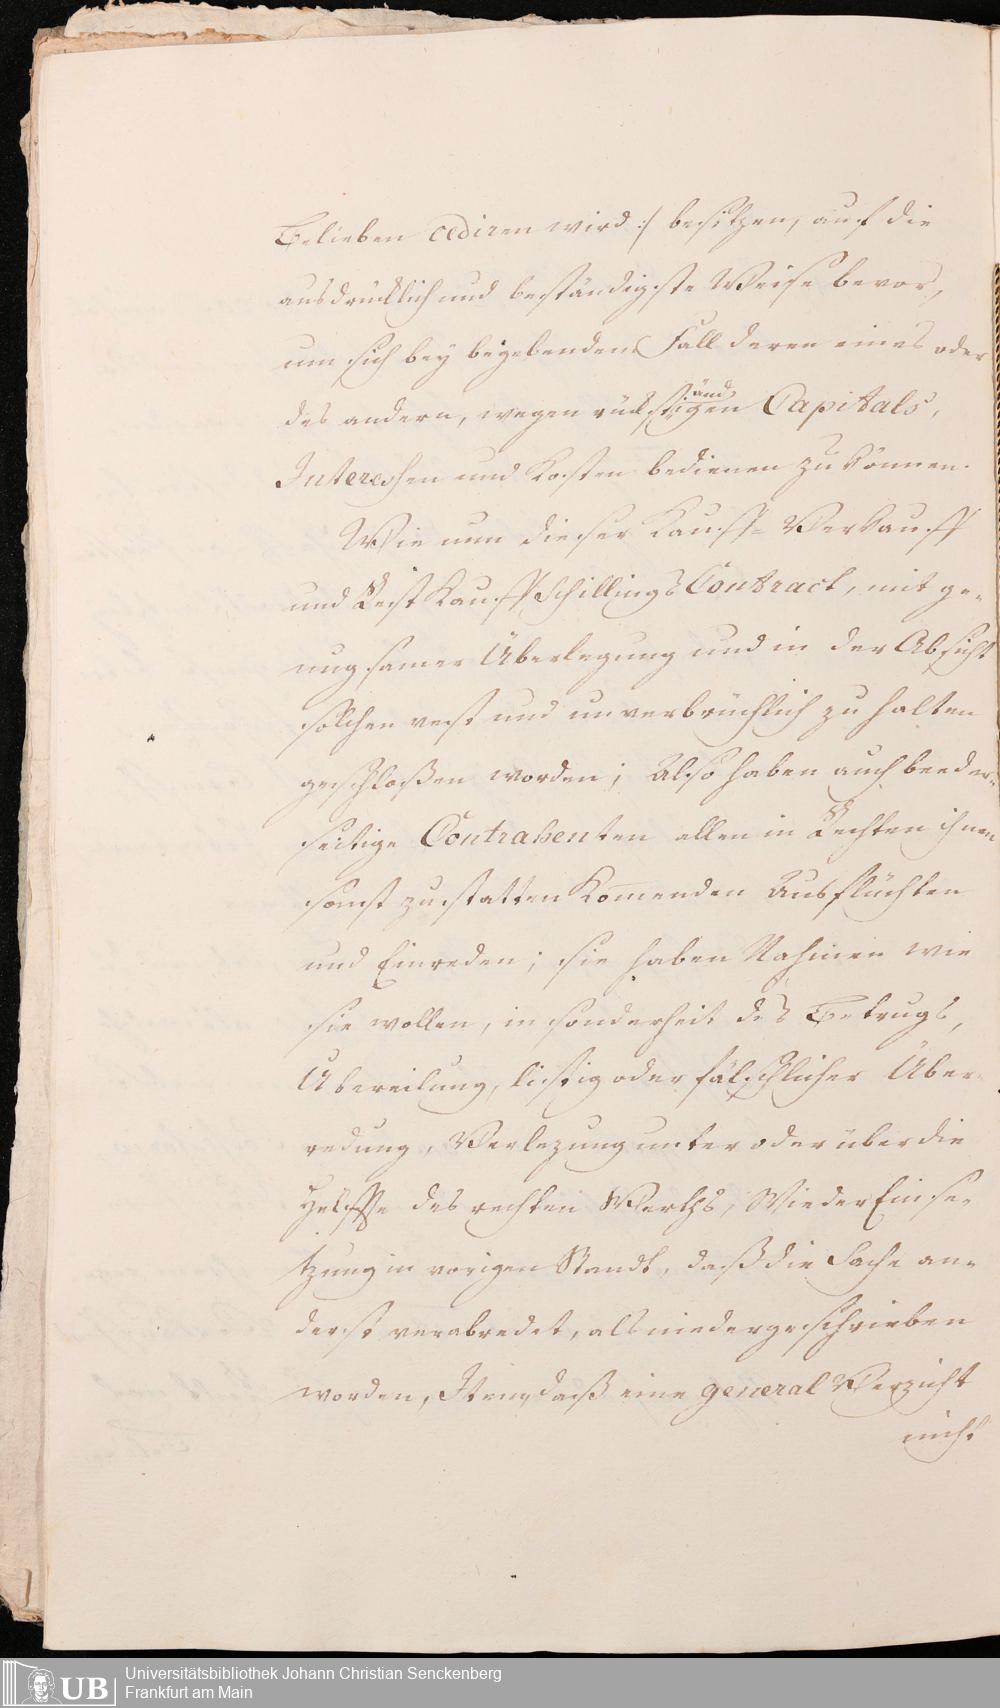 Belieben cediren wird :/ besitzen, auf die
ausdrücklich und beständigste Weise bevor,
um sich bey begebendem Fall deren eines oder
des andern, wegen rückständigen Capitals,
Interessen und Kosten bedienen zu können.
Wie nun dieser Kauff- Verkauff
und Rest Kauffschillings Contract, mit ge-
nugsamer Überlegung und in der Absicht
solchen vest und unverbrüchlich zu halten
geschloßen worden; Also haben auch beeder-
seitige Contrahenten allen in Rechten ihnen
sonst zustatten komenden Ausflüchten
und Einreden; sie haben Nahmen wie
sie wollen, in sonderheit des Betrugs,
Übereilung, listig oder fälschlicher Über-
redung, Verlezung unter oder über die
Helffte des rechten Werths, WiederEinse-
tzung in vorigen Standt, daß die Sache an-
derst verabredet, als niedergeschrieben
worden, Item, daß eine general Verzicht
nicht
Universitätsbibliothek Johann Christian Senckenberg
Frankfurt am Main
UB